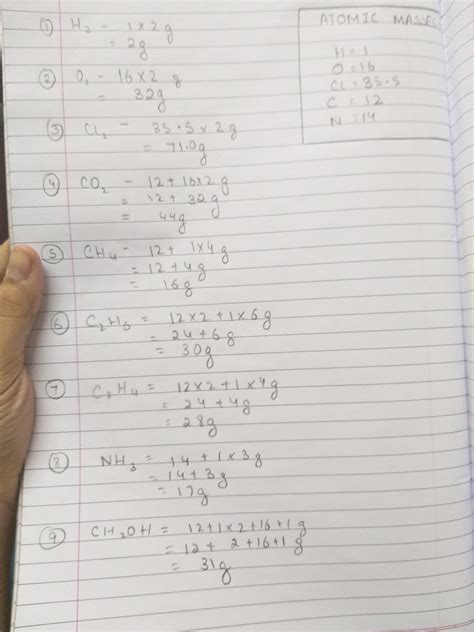 ① H₂ - 1×2g
= 2g
② O₂ - 16×2 g
= 32g
③ Cl₂ - 35.5×2g
= 71.0g
④ CO₂ - 12+16×2g
= 12+32g
= 44g
⑤ CH₄ - 12+ 1×4g
= 12+4g
= 16g
⑥ C₂H₆ = 12×2+1×6g
= 24+6g
= 30g
⑦ C₂H₄ = 12×2+1×4g
= 24+4g
= 28g
⑧ NH₃ = 14+1×3g
= 14+3g
= 17g
⑨ CH₂OH = 12+1×2+16+1g
= 12+ 2+16+1g
= 31g
ATOMIC MASSES
H=1
O=16
Cl=35.5
C=12
N=14